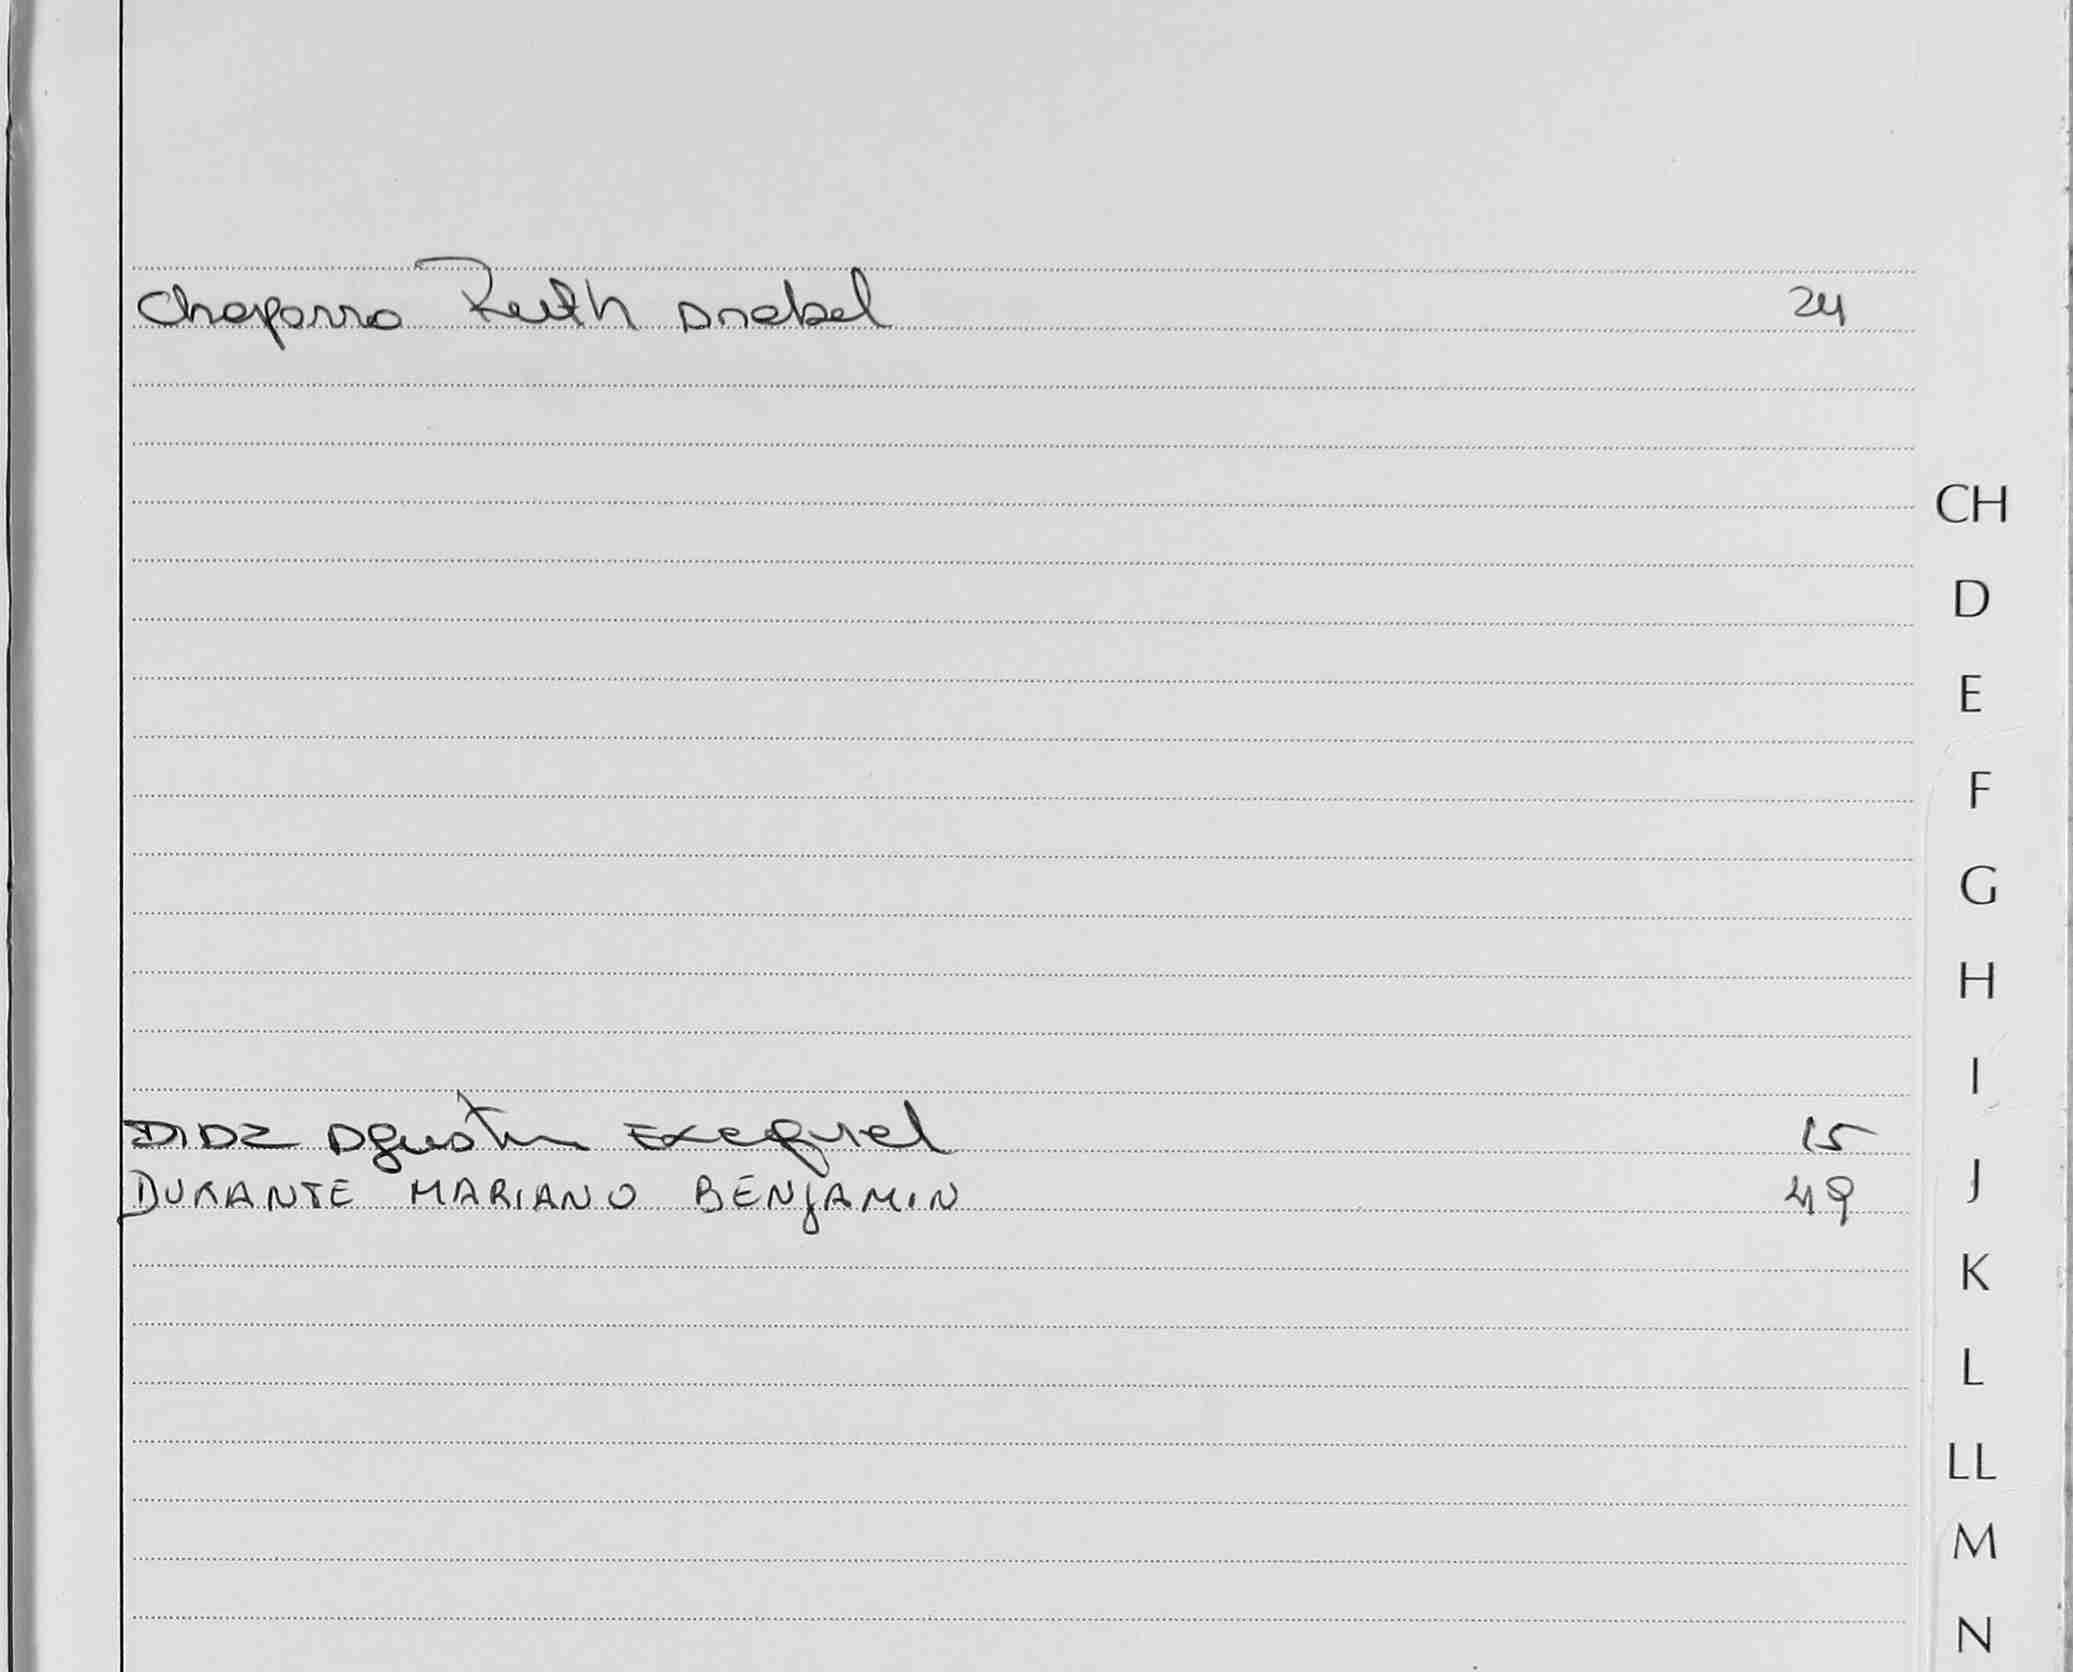 Chaparro Ruth Anabel 24
CH
D
E
F
G
H
I
DIAZ Agustin Exequiel 15
J
DURANTE MARIANO BENJAMIN 49
K
L
LL
M
N